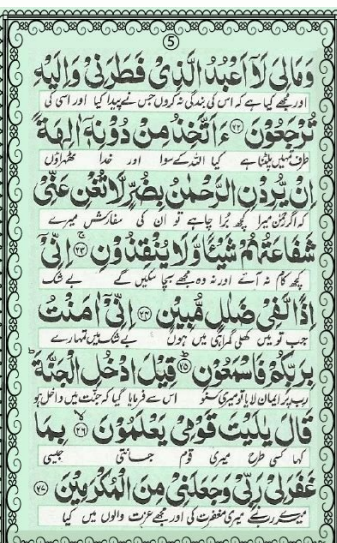 5
وَمَالِیَ لَاۤ اَعۡبُدُ الَّذِیۡ فَطَرَنِیۡ وَاِلَیۡهِ
اور مجھے کیا ہے کہ اس کی بندگی نہ کروں جس نے پیدا کیا اور اسی کی
تُرۡجَعُوۡنَ ﴿۲۲﴾ ءَاَتَّخِذُ مِنۡ دُوۡنِهٖۤ اٰلِهَةً
طرف تمہیں پلٹنا ہے کیا اللہ کے سوا اور خدا ٹھہراؤں
اِنۡ یُّرِدۡنِ الرَّحۡمٰنُ بِضُرٍّ لَّا تُغۡنِ عَنِّیۡ
کہ اگر رحمٰن میرا کچھ برا چاہے تو ان کی سفارش میرے
شَفَاعَتُهُمۡ شَیۡئًا وَّلَا یُنۡقِذُوۡنِ ﴿۲۳﴾ اِنِّیۡۤ
کچھ کام نہ آئے اور نہ وہ مجھے بچا سکیں گے بے شک
اِذًا لَّفِیۡ ضَلٰلٍ مُّبِیۡنٍ ﴿۲۴﴾ اِنِّیۡۤ اٰمَنۡتُ
جب تو میں کھلی گمراہی میں ہوں بے شک میں تمہارے
بِرَبِّكُمۡ فَاسۡمَعُوۡنِ ﴿۲۵﴾ قِیۡلَ ادۡخُلِ الۡجَنَّةَ
رب پر ایمان لایا تو میری سنو اس سے فرمایا گیا کہ جنت میں داخل ہو
قَالَ یٰلَیۡتَ قَوۡمِیۡ یَعۡلَمُوۡنَ ﴿۲۶﴾ بِمَا
کہا کسی طرح میری قوم جانتی جیسی
غَفَرَلِیۡ رَبِّیۡ وَجَعَلَنِیۡ مِنَ الۡمُكۡرَمِیۡنَ ﴿۲۷﴾
میرے رب نے میری مغفرت کی اور مجھے عزت والوں میں کیا